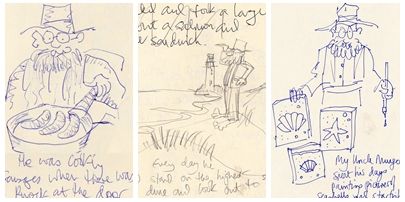 He was cooking
Sausages when there was
Knock at the door
and took a large
out a salmon and
sandwich.
Every day he
stand on the highest
dune and look out to
My Uncle
spent his days
painting pictures of